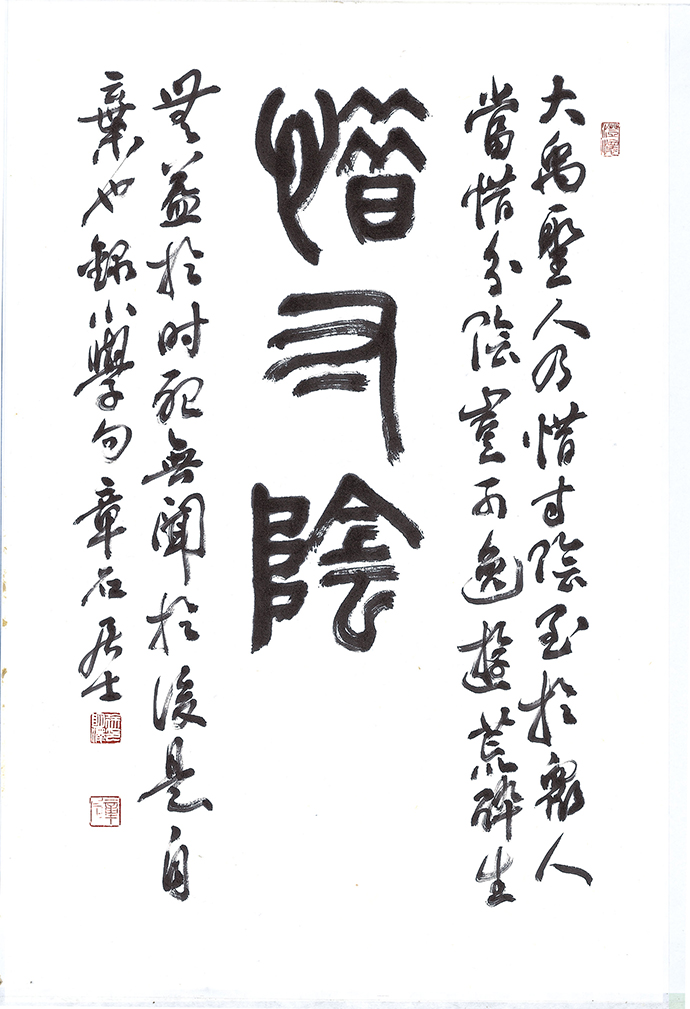 大禹聖人乃惜寸陰至於衆人
當惜分陰豈可逸遊荒醉生
惜寸陰
無益於時死無聞於後是自
棄也錄小學句章石居士